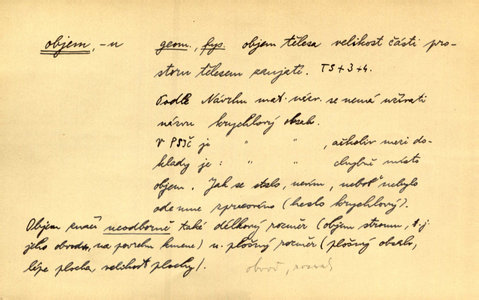 objem, -u geom., fys. objem tělesa velikost části pro-
storu tělesem zaujatí. TS + 3 + 4.
Podle Návrhu mat. názv. se nemá užívati
názvu krychlový obsah.
V PSJČ je " " , ačkoliv mezi do-
klady je: " " chybně místo
objem. Jak se stalo, nevím, neboť nebylo
ode mne zpracováno (heslo krychlový).
Objem značí neodborně také délkový rozměr (objem stromu, t. j.
jeho obvodu, na povrchu kmene) n. plošný rozměr (plošný obsah,
lépe plocha velikost plochy).
obvod,